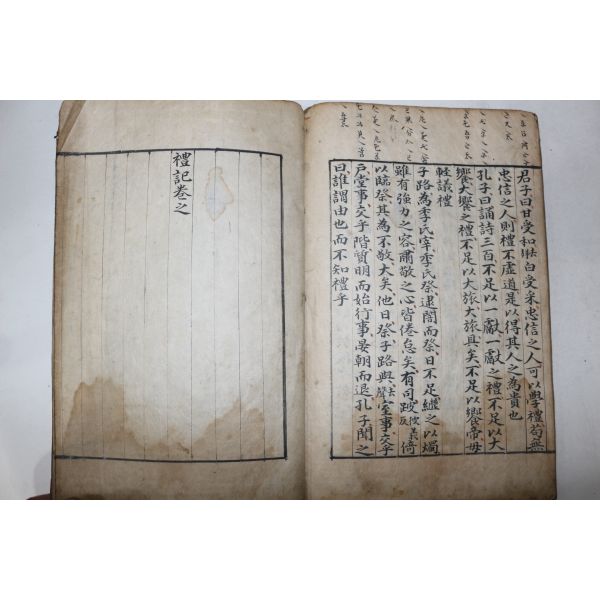 君子曰甘受和白受采忠信之人可以學禮苟無
忠信之人則禮不虛道是以得其人之為貴也
孔子曰誦詩三百不足以一獻一獻之禮不足以大
饗大饗之禮不足以大旅大旅具矣不足以饗帝毋
輕議禮
子路為季氏宰季氏祭逮闇而祭日不足繼之以燭
雖有強力之容肅敬之心皆倦怠矣有司跛彼義反倚
以臨祭其為不敬大矣他日祭子路與去聲室事交乎
戶堂事交乎階質明而始行事晏朝而退孔子聞之
曰誰謂由也而不知禮乎
禮記卷之